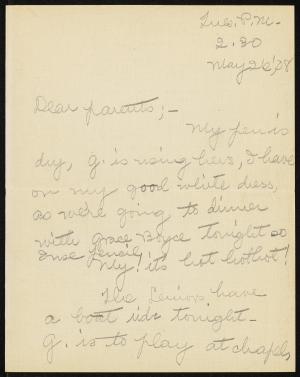 Tues. P.M.
2.30
May 26, '28
Dear parents; -
My pen is
dry, G. is using hers, I have
on my good white dress,
as we're going to dinner
with Grace Boyce tonight so
I use pencil.
My! it's hot hot hot!
The Seniors have
a boat ride tonight -
G. is to play at chapel